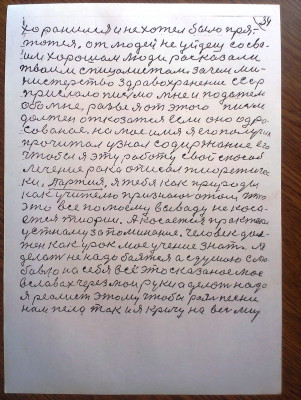 34
хоранился и не хотел было пря-
тотся, от людей не уйдеш со сво-
им хорошом люди расказали
твоим специалистам зачем ми-
нистерство здравохранение СССР
прислало письмо мне и подател
обо мне, разве я от этого письма
должен отказотся если оно адре-
сованое на мое имя я его получил
прочитал узнал содержание его
чтобы я эту работу свой способ
лечение рака описал теоретичес-
ки. Партия, я тебя как природы
как учителю признаю отом, что
это все по моему всегаду не кося-
ется теории. А косается практика
уст на му запоминание. Человек дол-
жен как урок мое учение знать. А
делать не надо боятся а с душою с лю-
бавю на себя всё это сказаное мое
в славах через мои руки а делат надо
я реалист этому чтобы разь песни
нам пела так и я кричу на весь мир